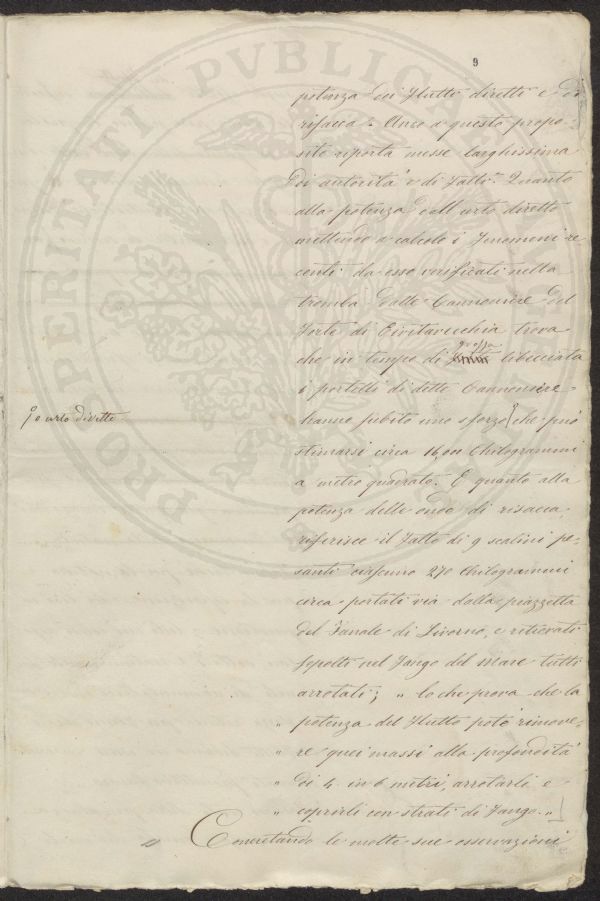 9
potenza dei flutti diretti e di
risacca. Anzi a questo propo-
sito riporta messe larghissima
di autorità e di fatti. Quanto
alla potenza dell'urto diretto
mettendo a calcolo i fenomeni re
centi da esso verificati nella
tromba delle Cannoniere del
Forte di Civitavecchia trova
che in tempo di grossa libecciata
i portelli di dette Cannoniere
hanno subito uno sforzo che può
o urto diretto
stimarsi circa 16,000 Chilogrammi
a metro quadrato. E quanto alla
potenza delle onde di risacca,
riferisce il fatto di 9 scalini pe-
santi ciascuno 270 Chilogrammi
circa portati via dalla piazzetta
del Fanale di Livorno, e ritrovati
sepolti nel fango del mare tutti
arrotati; „ lo che prova che la
„ potenza del flutto potè rimove-
„ re quei massi alla profondità
„ di 4 in 6 metri, arrotarli e
„ coprirli con strati di fango. „
Concretando le molte sue osservazioni
PROSPERITATI PVBLICAE